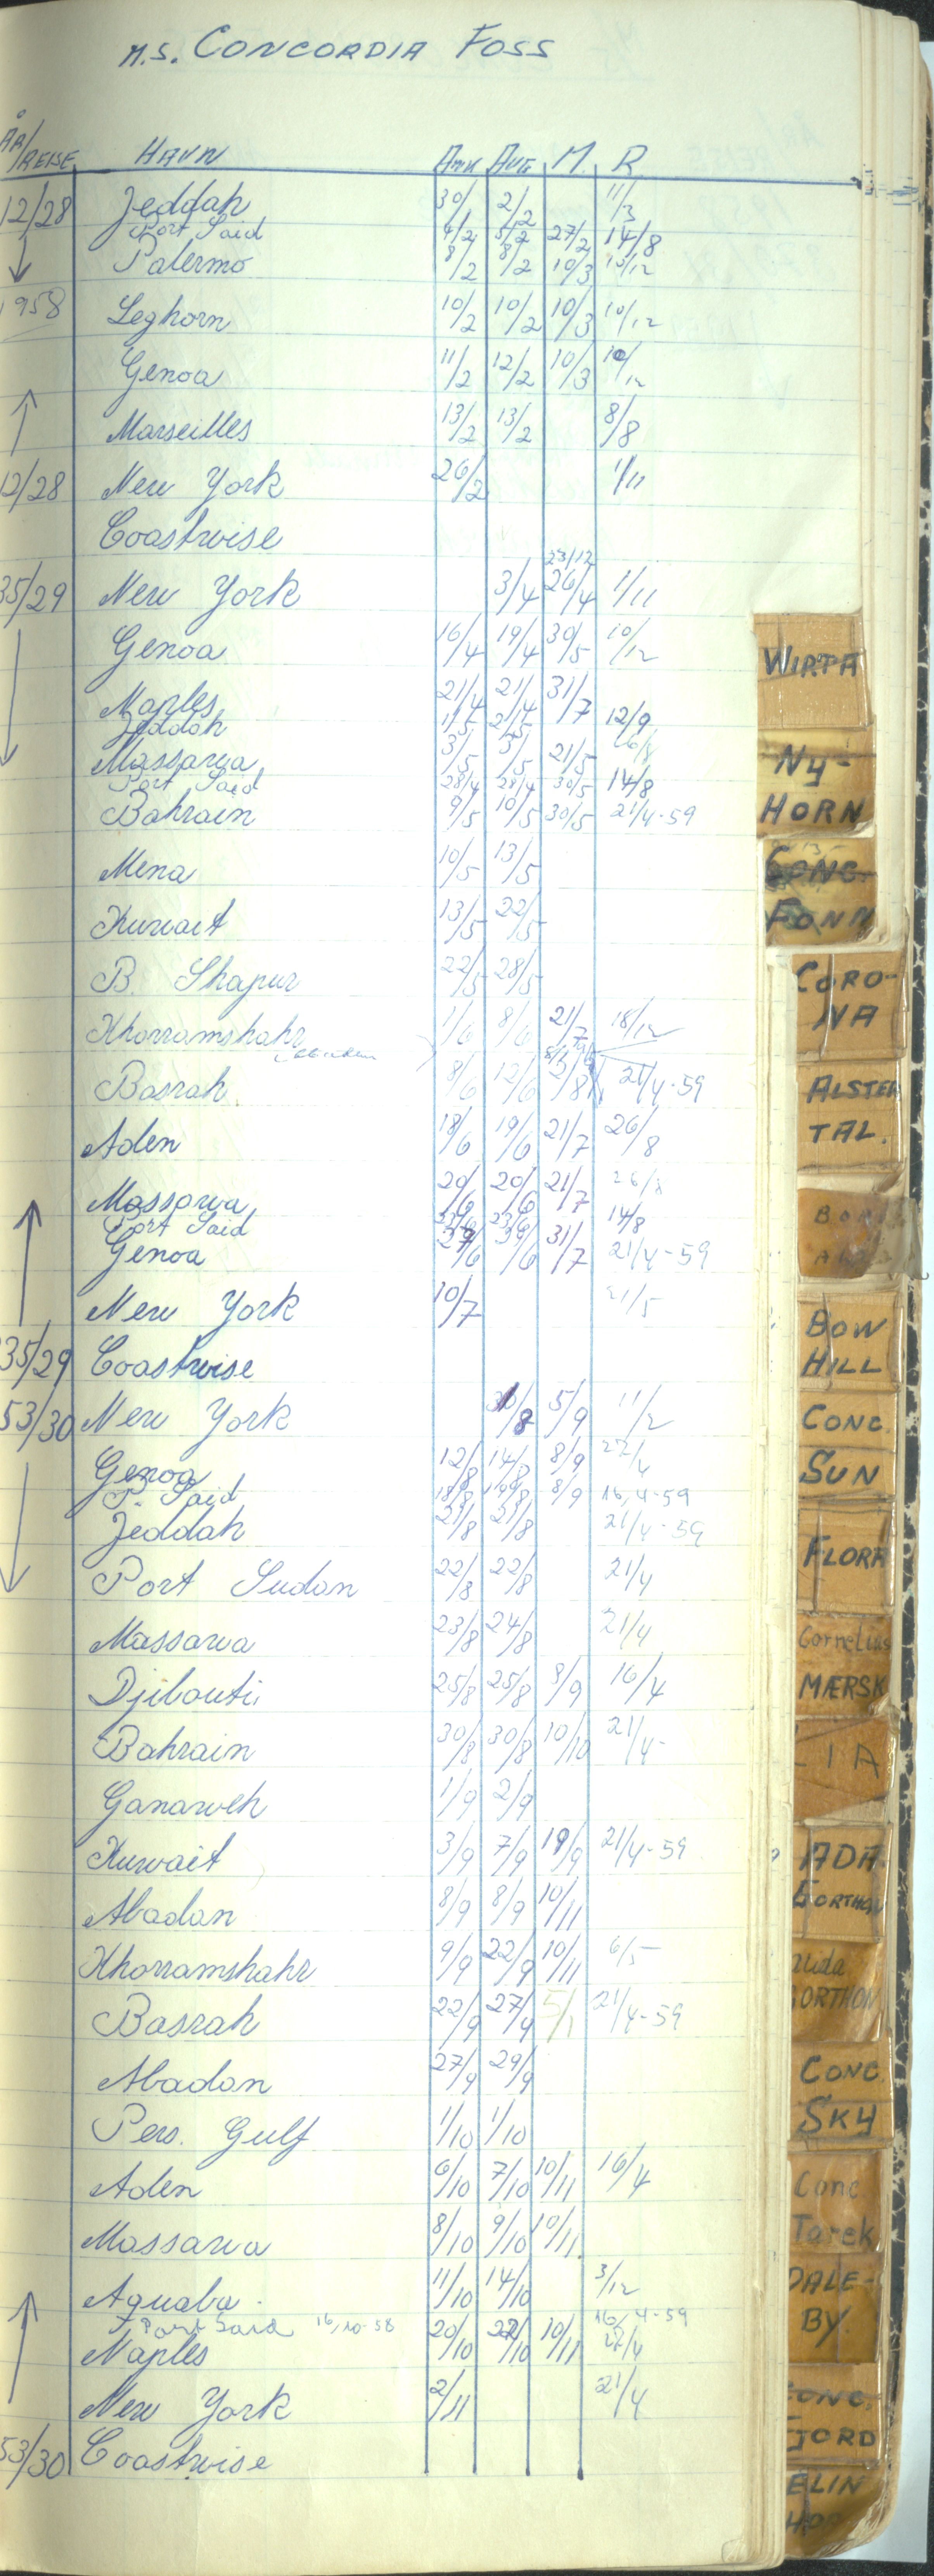 M.S. CONCORDIA FOSS
ÅR/REISE HAVN ANK AVG. M. R
12/28 Jeddah 30/1 2/2 11/3
Port Said 4/2 5/2 27/2 14/8
Palermo 8/2 8/2 10/3 10/12
1958 Leghorn 10/2 10/2 10/3 10/12
Genoa 11/2 12/2 10/3 10/12
Marseilles 13/2 13/2 8/8
12/28 New York 26/2 1/11
Coastwise
23/12
35/29 New York 3/4 26/4 1/11
Genoa 16/4 19/4 30/5 10/12
Naples 21/4 21/4 31/7
Jeddah 1/5 2/5 12/9
Massawa 3/5 3/5 21/5
Port Said 28/4 28/4 30/5 14/8
Bahrain 9/5 10/5 30/5 21/4-59
Mena 10/5 13/5
Kuwait 13/5 22/5
B. Shapur 22/5 28/5
Khorramshahr 1/6 8/6 21/7 18/12
Basrah 8/6 12/6 21/4-59
Aden 18/6 19/6 21/7 26/8
Massawa 20/6 20/6 21/7 26/8
Port Said 14/8
Genoa 31/7 21/4-59
New York 10/7 21/5
35/29 Coastwise
53/30 New York 5/9 11/2
Genoa 12/8 14/8 8/9
P. Said 8/9 16/4-59
Jeddah 21/8 21/8 21/4-59
Port Sudan 22/8 22/8 21/4
Massawa 23/8 24/8 21/4
Djibouti 25/8 25/8 8/9 16/4
Bahrain 30/8 30/8 10/10 21/4-
Ganaweh 1/9 2/9
Kuwait 3/9 7/9 19/9 21/4-59
Abadan 8/9 8/9 10/11
Khorramshahr 9/9 22/9 10/11 6/5
Basrah 22/9 27/9 5/1 21/4-59
Abadan 27/9 29/9
Pers. Gulf 1/10 1/10
Aden 6/10 7/10 10/11 16/4
Massawa 8/10 9/10 10/11
Aquaba 11/10 14/10 3/12
Port Said 16/10-58 16/4-59
Naples 20/10 22/10 10/11 22/4
New York 2/11 21/4
53/30 Coastwise
WIRTA
NY-
HORN
CONC.
FONN
CORO-
NA
ALSTER
TAL.
BOW
HILL
CONC.
SUN
FLORA
Cornelius
MÆRSK
LIA
ADA
GORTHON
GORTHON
CONC
SKY
Conc
Tarek
DALE-
BY.
CONC.
FJORD
ELIN